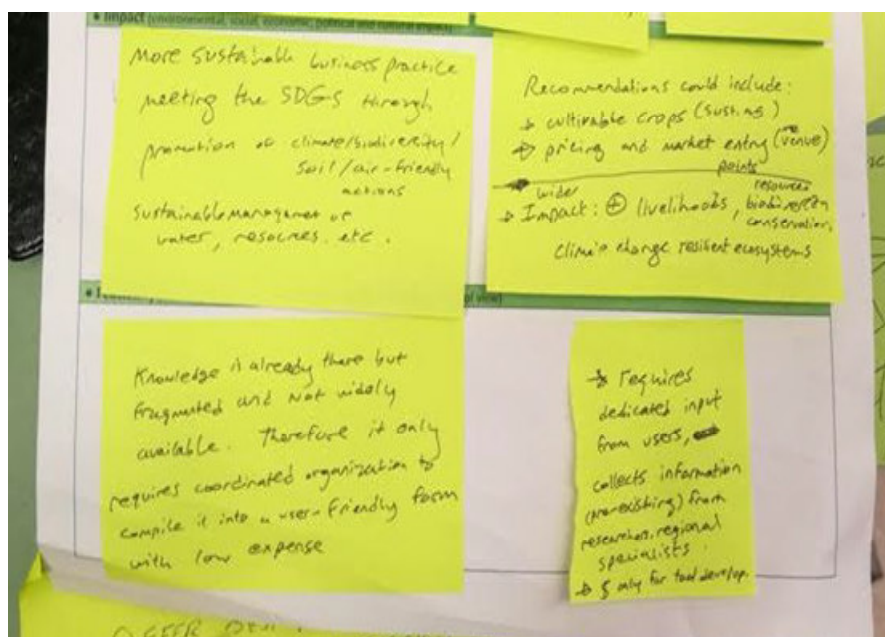 • Impact (environmental, social, economic, political and natural impact)
More sustainable business practice
meeting the SDGs through
promotion of climate/biodiversity/
soil/air-friendly
actions
Sustainable management of
water, resources. etc.
Recommendations could include:
→ cultivable crops
→ pricing and market entry (venue)
points
wider
→ Impact: ⊕ livelihoods, resources
biodiversity
conservation,
climate change resilient ecosystems
Knowledge is already there but
fragmented and not widely
available. Therefore it only
requires coordinated organization to
compile it into a user-friendly form
with low expense
→ requires
dedicated input
from users,
collects information
(pre-existing) from
researchers, regional
specialists.
→ $ only for tool develop.